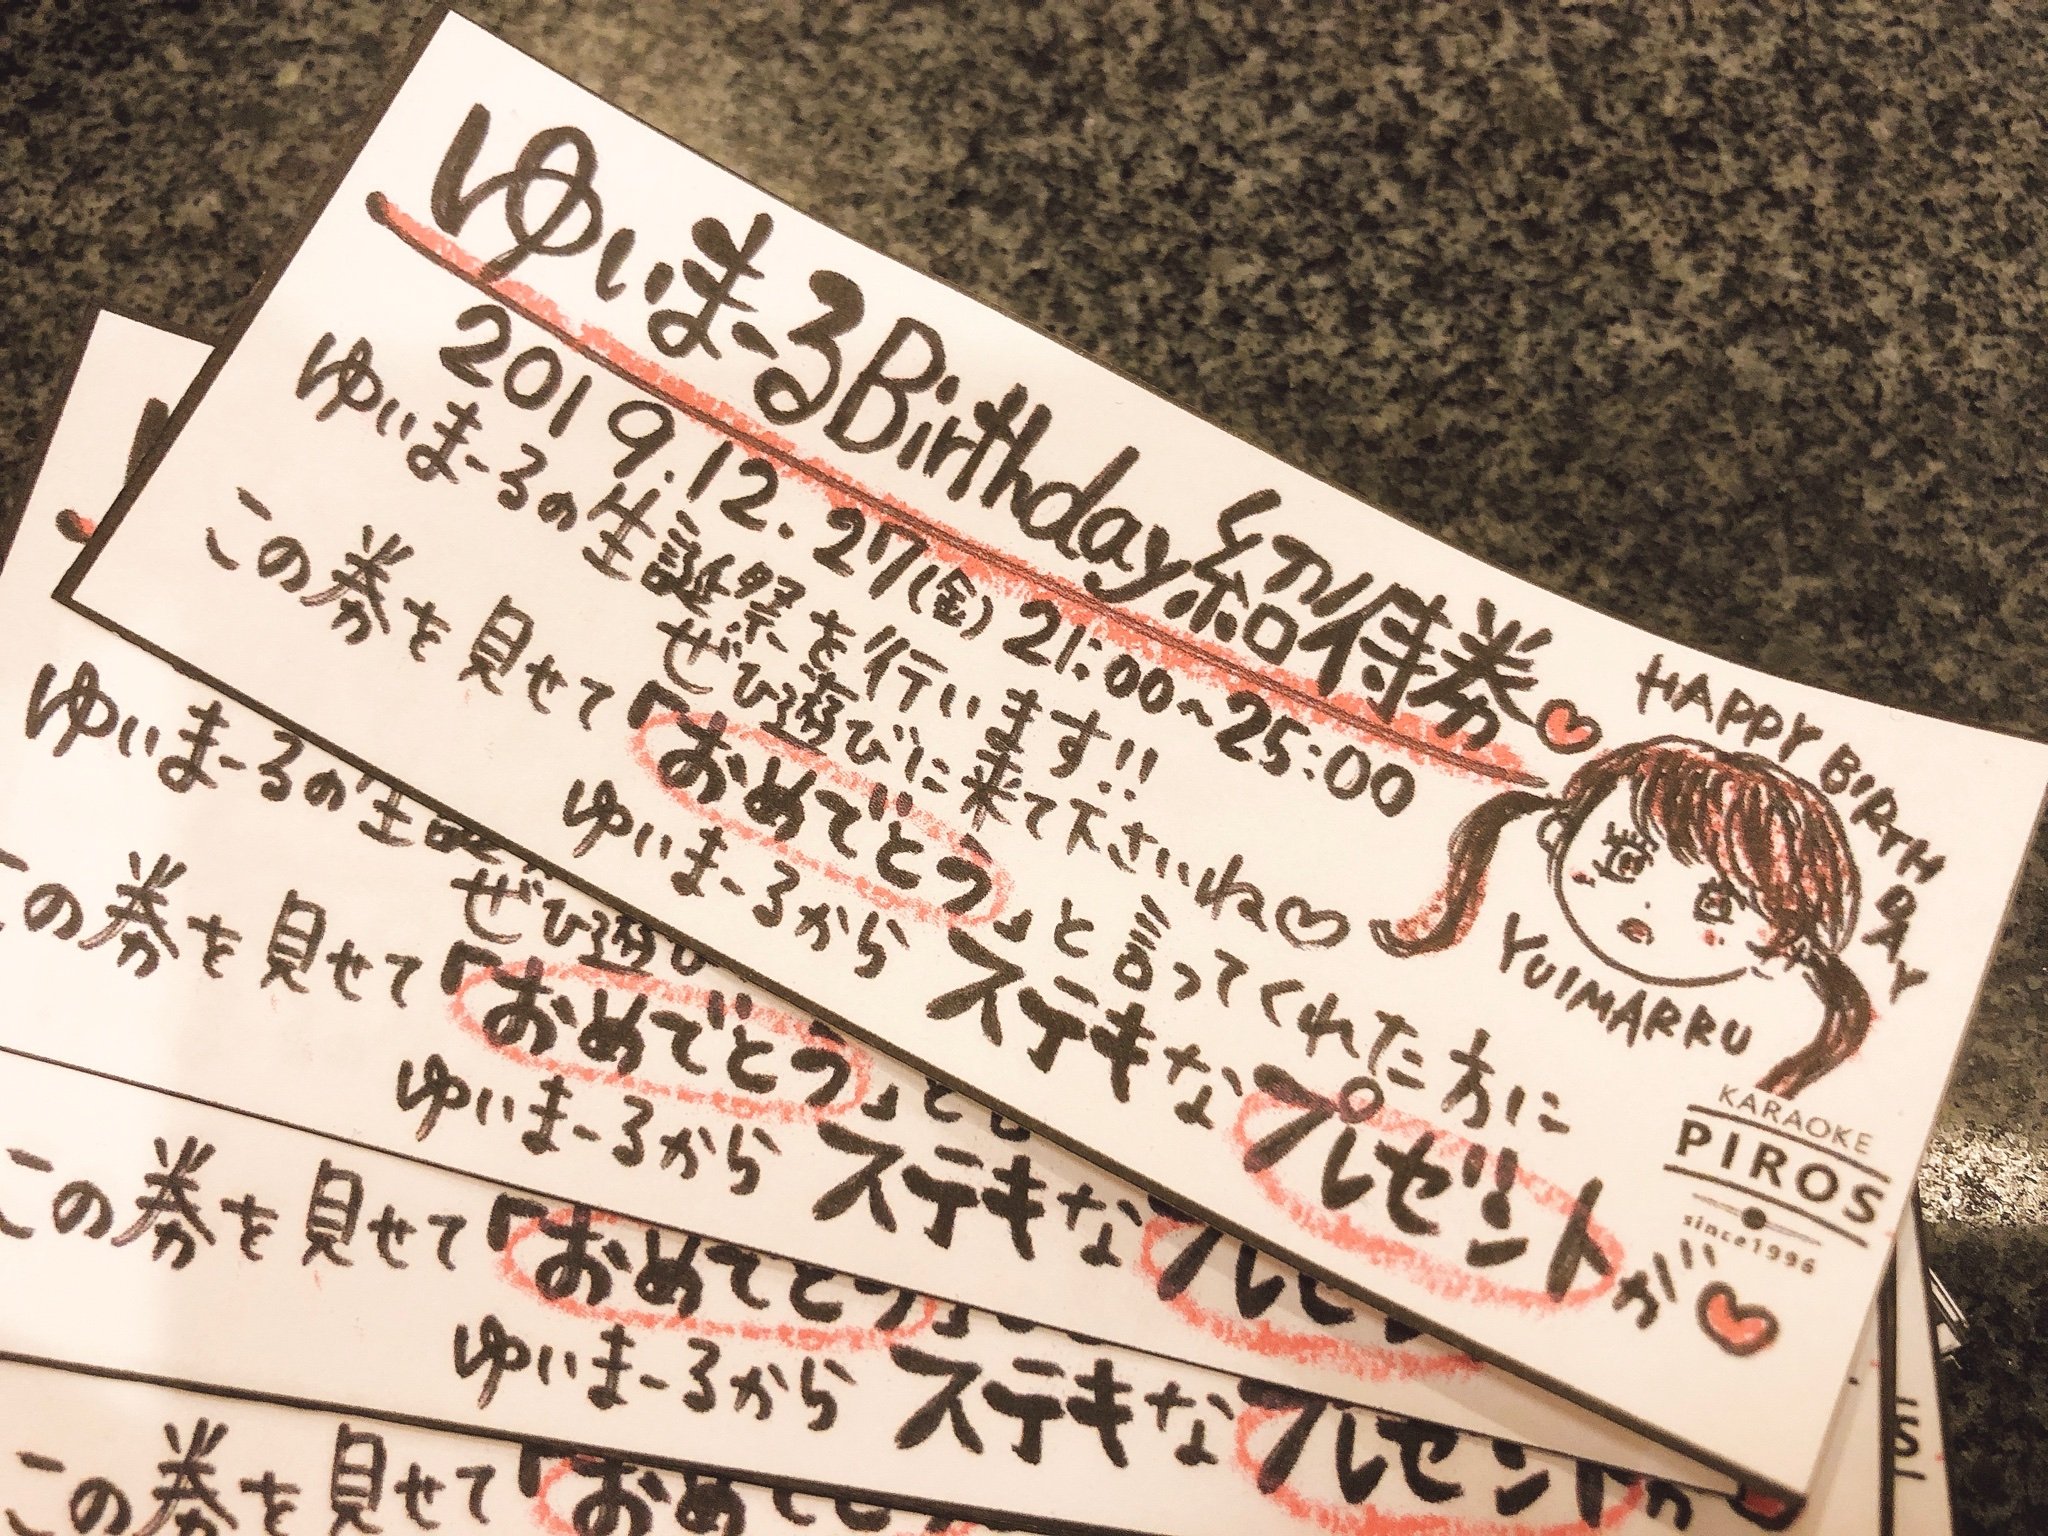 ゆいまーるBirthday紹待券
2019.12.27(金)21:00~25:00
ゆいまーるの生誕祭を行います!!
ぜひ遊びに来て下さいね
この券を見せて「おめでとう」と言ってくれた方に
ゆいまーるからステキなプレゼントが
HAPPY BIRTHDAY
YUIMARRU
KARAOKE
PIROS
since1996
ゆいまーるの生誕
ぜひ遊び
この券を見せて「おめでとう」と
ゆいまーるからステキなプレゼン
この券を見せて「おめでとう」
ゆいまーるからステキなプレゼントが
この券を見せて「おめでと